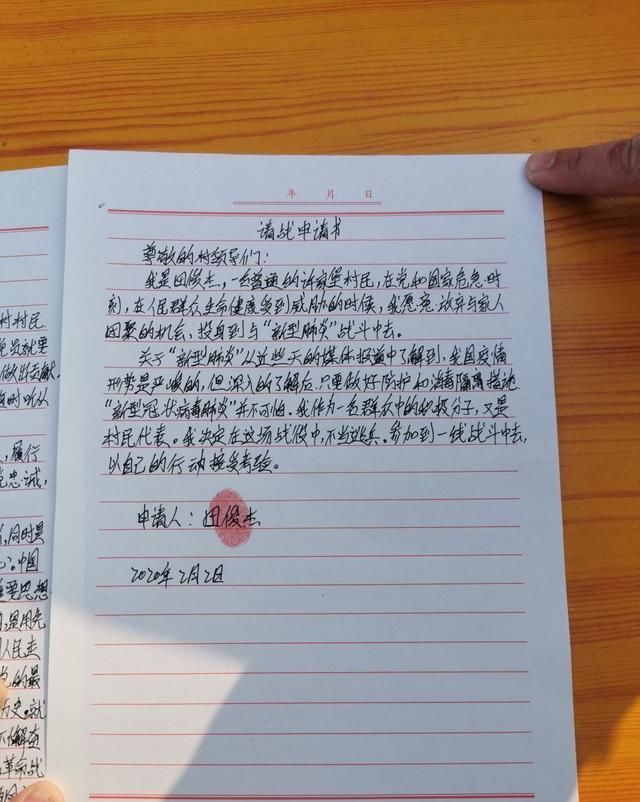 年 月 日
请战申请书
尊敬的村领导们：
我是田俊杰，一名普通的许家堡村民，在党和国家危急时
刻，在人民群众生命健康受到威胁的时候，我愿意放弃与家人
团聚的机会，投身到与“新型肺炎”战斗中去。
关于“新型肺炎”从近些天的媒体报道中了解到，我国疫情
形势是严峻的，但深入的了解后，只要做好防护和消毒隔离措施
“新型冠状病毒肺炎”并不可怕。我作为一名群众中的积极分子，又是
村民代表。我决定在这场战役中，不当逃兵。参加到一线战斗中去，
以自己的行动接受考验。
申请人：田俊杰
2020年2月2日
村村民
党员就要
做出贡献.
时听从
履行
党忠诚，
同时是
中国
重要思想
是用先
人民走
党的最
历史.就
不懈奋
革命战